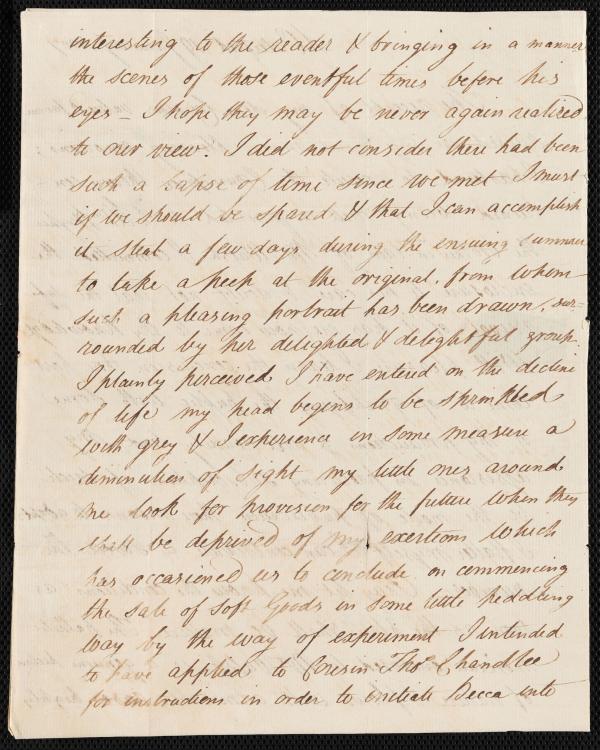 interesting to the reader & bringing in a manner
the scenes of those eventful times before his
eyes – I hope they may be never again realized
to our view. I did not consider there had been
such a lapse of time since we met I must
if we should be spared & that I can accomplish
it steal a few days during the ensuing summer
to take a peep at the original, from whom
such a pleasing portrait has been drawn, sur=
rounded by her delighted & delightful group.
I plainly perceived I have entered on the decline
of life my head begins to be sprinkled
with grey & I experience in some measure a
diminution of sight my little ones around
me look for provision for the future when they
shall be deprived of my exertions which
has occasioned us to conclude on commencing
the sale of Soft Goods in some little peddling
way by the way of experiment I intended
to have applied to Cousin Thos Chandlee
for instructions in order to initiate Becca into